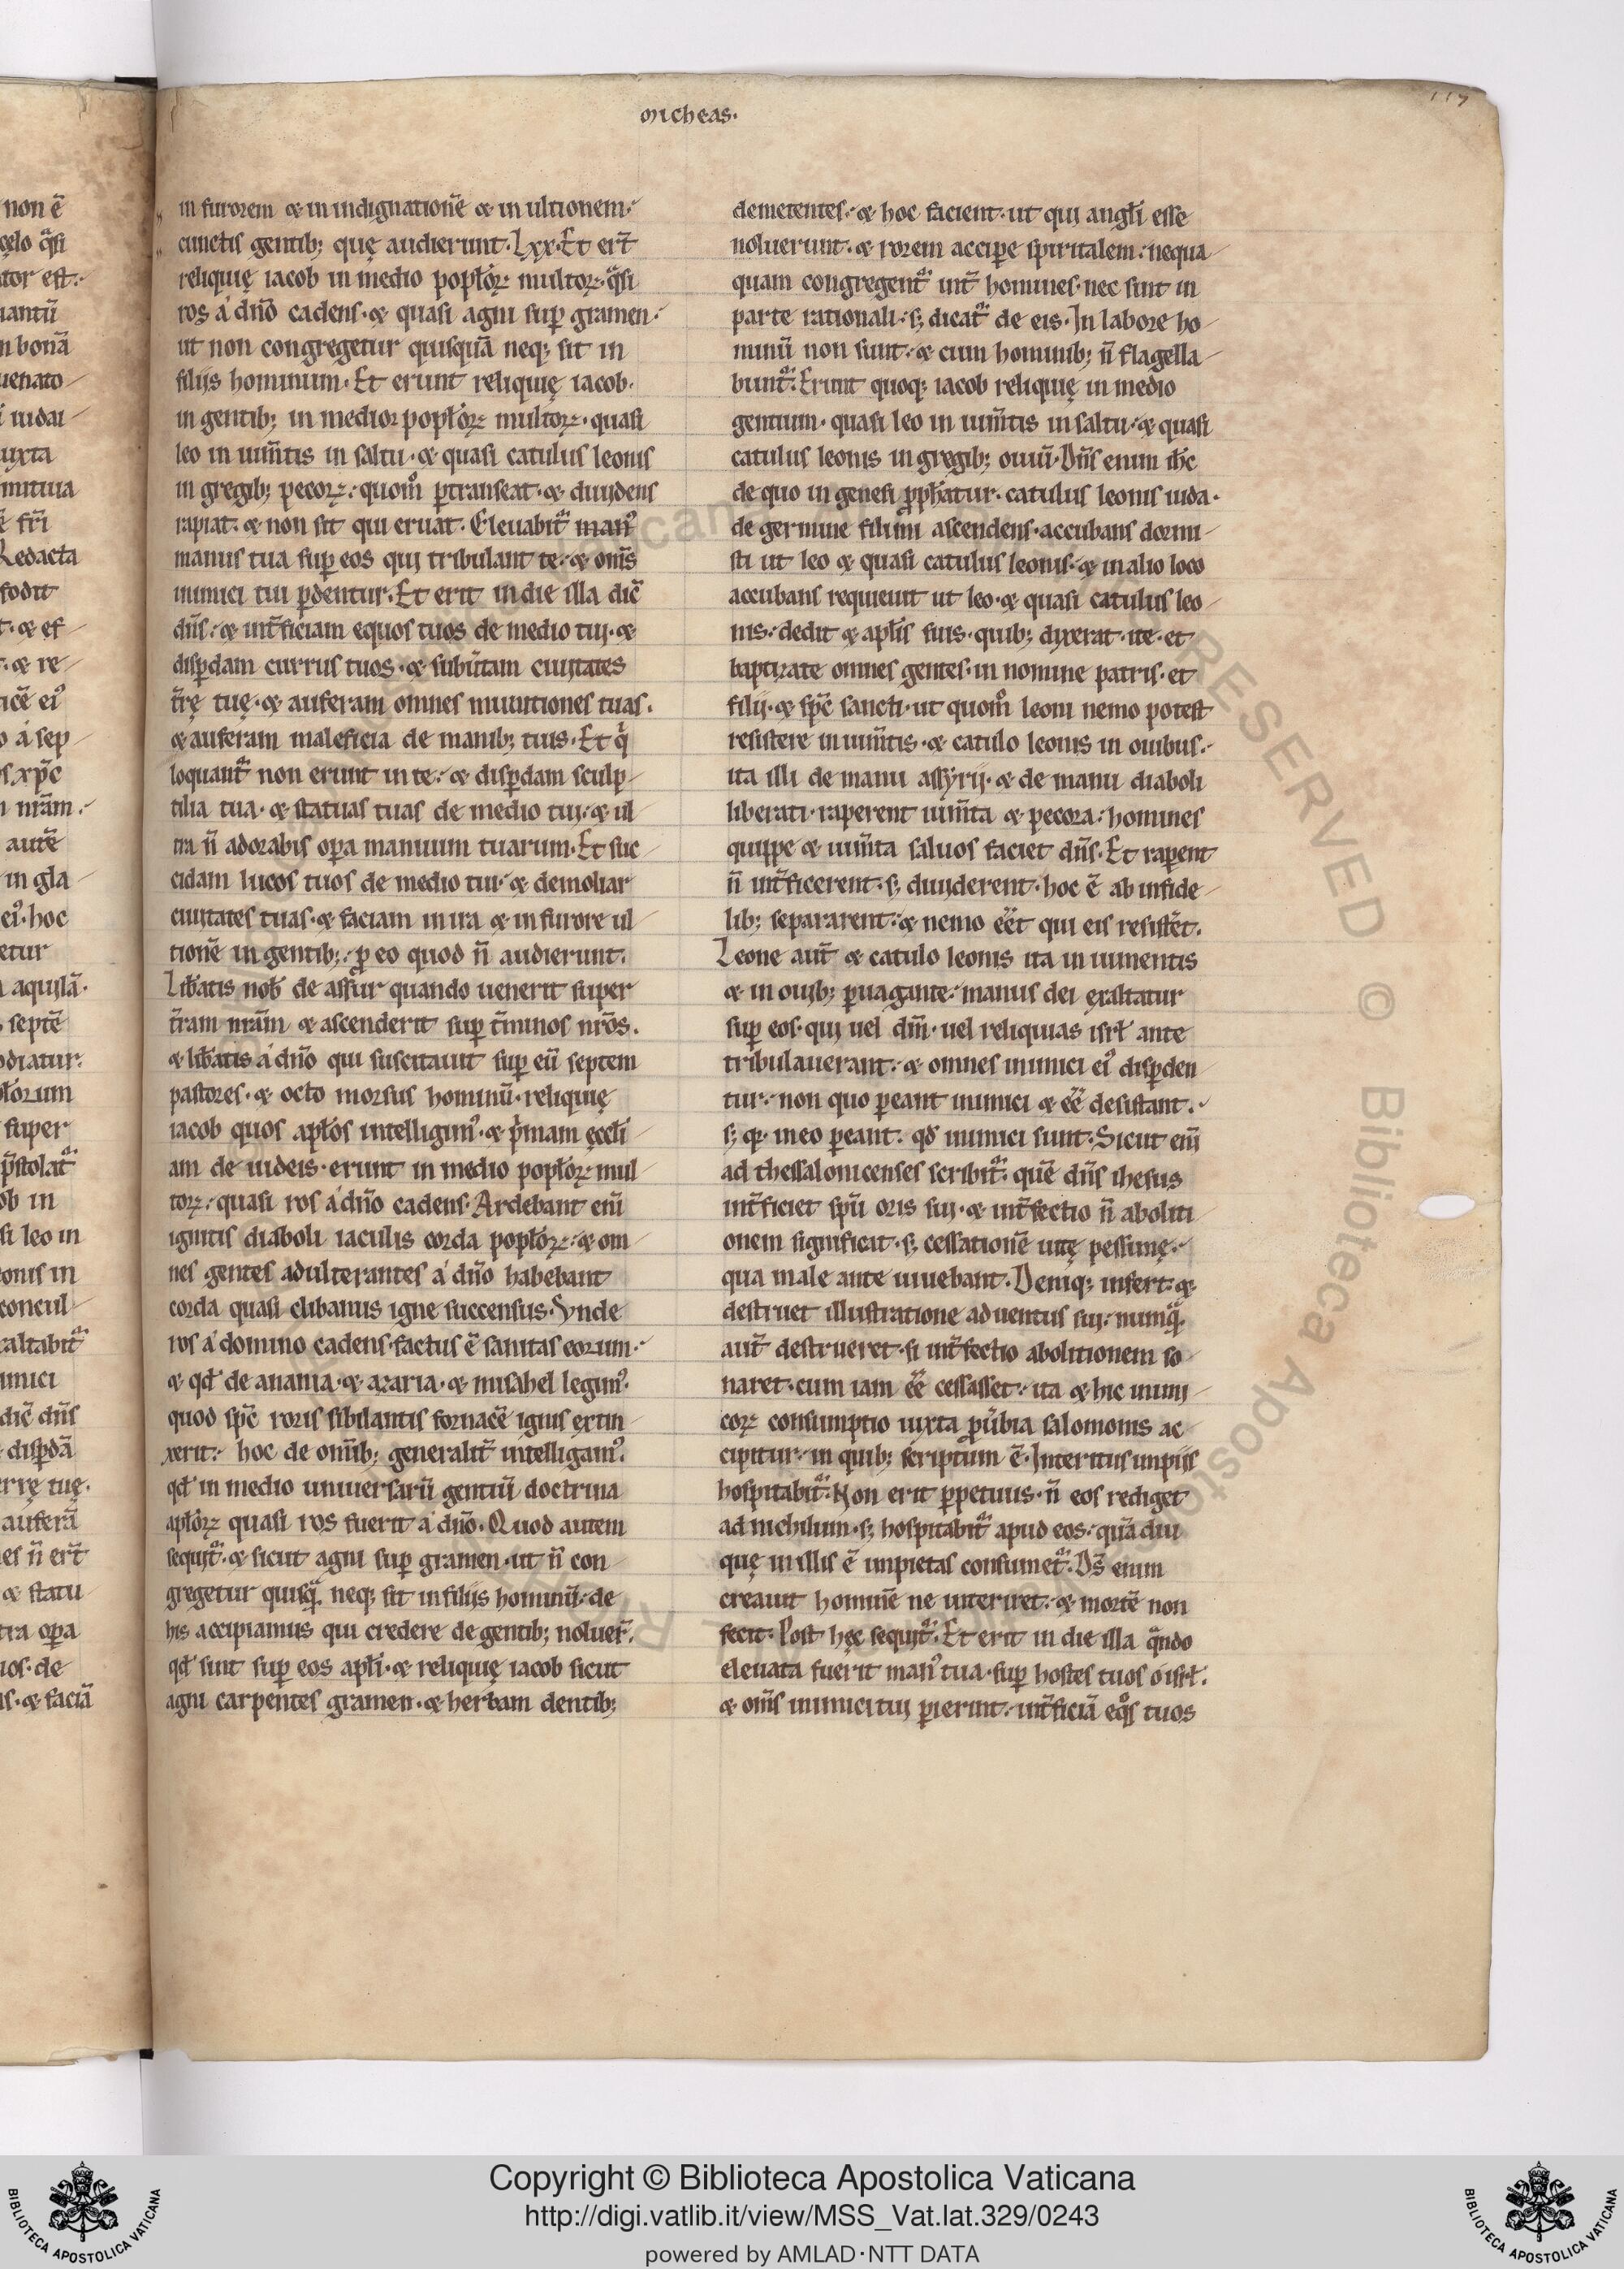 micheas.
117
in furorem & in indignationē & in ultionem.
cunctis gentib; quę audierunt. Lxx. Et er̄t
reliquię iacob in medio popl̄oꝝ multoꝝ. q̄si
ros á dn̄o cadens. & quasi agni suꝑ gramen.
ut non congregetur quisquā neq; sit in
filiis hominum. Et erunt reliquię iacob.
in gentib; in medior popl̄oꝝ multoꝝ. quasi
leo in ium̄tis in saltu. & quasi catulus leonis
in gregib; pecoꝝ. quom̊ ꝑtranseat. & diuidens
rapiat. & non sit qui eruat. Eleuabit᷑ man᷒
manus tua suꝑ eos qui tribulant te. & om̄s
inimici tui ꝑdentur. Et erit in die illa dic̄
dn̄s. & int̄ficiam equos tuos de medio tui. &
disꝑdam currus tuos. & subūtam ciuitates
t̄rę tuę. & auferam omnes munitiones tuas.
& auferam maleficia de manib; tuis. Et q̇
loquant᷑ non erunt in te. & disꝑdam sculp
tilia tua. & statuas tuas de medio tui. & ul
tra n̄ adorabis oꝑa manuum tuarum. Et suc
cidam lucos tuos de medio tui. & demoliar
ciuitates tuas. & faciam in ira & in furore ul
tionē in gentib;. ꝓ eo quod n̄ audierunt.
Lib̄atis nob̄ de assur quando uenerit super
t̄ram nr̄am & ascenderit suꝑ t̄minos nr̄os.
& lib̄atis á dn̄o qui suscitauit suꝑ eū septem
pastores. & octo morsus hominū. reliquię
iacob quos apl̄os intelligim᷒. & p̄mam ęccl̄i
am de iudeis. erunt in medio popl̄oꝝ mul
toꝝ. quasi ros á dn̄o cadens. Ardebant enī
ignitis diaboli iaculis corda popl̄oꝝ. & om
nes gentes adulterantes á dn̄o habebant
corda quasi clibanus igne succensus. Vnde
ros á domino cadens. factus ē sanitas eorum.
& qd̄ de anania. & azaria. & misahel legim᷒.
quod sp̄c roris sibilantis fornacē ignis extin
xerit. hoc de omīb; generalit̄ intelligam᷒.
qd̄ in medio uniuersarū gentiū doctrina
apl̄oꝝ quasi ros fuerit á dn̄o. Quod autem
sequit᷑. & sicut agni suꝑ gramen. ut n̄ con
gregetur quisq̄. neq; sit in filiis hominū. de
his accipiamus qui credere de gentib; noluer̄.
qd̄ sint suꝑ eos apl̄i. & reliquię iacob sicut
agni carpentes gramen. & herbam dentib;
demetentes. & hoc facient. ut qui angl̄i esse
noluerunt. & rorem acciꝑe spiritalem. nequa
quam congregent᷑ int̄ homines. nec sint in
parte rationali. s; dicat᷑ de eis. In labore ho
minū non sunt. & cum hominib; n̄ flagella
bunt᷑. Erunt quoq; iacob reliquię in medio
gentium. quasi leo in ium̄tis in saltu. & quasi
catulus leonis in gregib; ouiū. Dn̄s enim ih̄c
de quo in genesi ꝓph̄atur. catulus leonis iuda.
de germine fili mi ascendens. accubans dormi
sti ut leo & quasi catulus leonis. & in alio loco
accubans requieuit ut leo. & quasi catulus leo
nis. dedit & apl̄is suis. quib; dixerat. ite. et
baptizate omnes gentes. in nomine patris. et
filii. & sp̄c sancti. ut quom̊ leoni nemo potest
resistere in ium̄tis. & catulo leonis in ouibus.
ita illi de manu assyrii. & de manu diaboli
liberati. raperent ium̄ta & pecora. homines
quippe & ium̄ta saluos faciet dn̄s. Et raꝑent
n̄ int̄ficerent. s; diuiderent. hoc ē ab infide
lib; separarent. & nemo eēt qui eis resist̄et.
Leone aut̄ & catulo leonis ita in iumentis
& in ouib; ꝑuagante. manus dei exaltatur
suꝑ eos. qui uel dn̄m. uel reliquias isrl̄ ante
tribulauerant. & omnes inimici ei᷒ disꝑden
tur. non quo ꝑeant inimici & eē desistant.
s; q. in eo ꝑeant. qd̄ inimici sunt. Sicut enī
ad thessalonicenses scribit᷑. quē dn̄s ihesus
int̄ficiet spū oris sui. & int̄fectio n̄ aboliti
onem significat. s; cessationē uitę pessimę.
qua male ante uiuebant. Deniq; infert. &
destruet illustratione aduentus sui. numq̄.
aut̄ destrueret. si int̄fectio abolitionem so
naret. cum iam eē cessasset. ita & hic inimi
coꝝ consumptio iuxta ꝓūbia salomonis ac
cipitur. in quib; scriptum ē. Interitus impiis
hospitabit᷑. Non erit ꝑpetuus. n̄ eos rediget
ad nichilum. s; hospitabit᷑ apud eos. quā diu
quę in illis ē impietas consumet᷑. Ds̄ enim
creauit hominē ne interiret. & mortē non
fecit. Post hęc sequit᷑. Et erit in die illa q̄ndo
eleuata fuerit man᷒ tua. suꝑ hostes tuos ó isrl̄.
& om̄s inimici tui ꝑierint. int̄ficiā eq̊s tuos
Copyright © Biblioteca Apostolica Vaticana
http://digi.vatlib.it/view/MSS_Vat.lat.329/0243
powered by AMLAD·NTT DATA
BIBLIOTECA APOSTOLICA VATICANA
BIBLIOTECA APOSTOLICA VATICANA